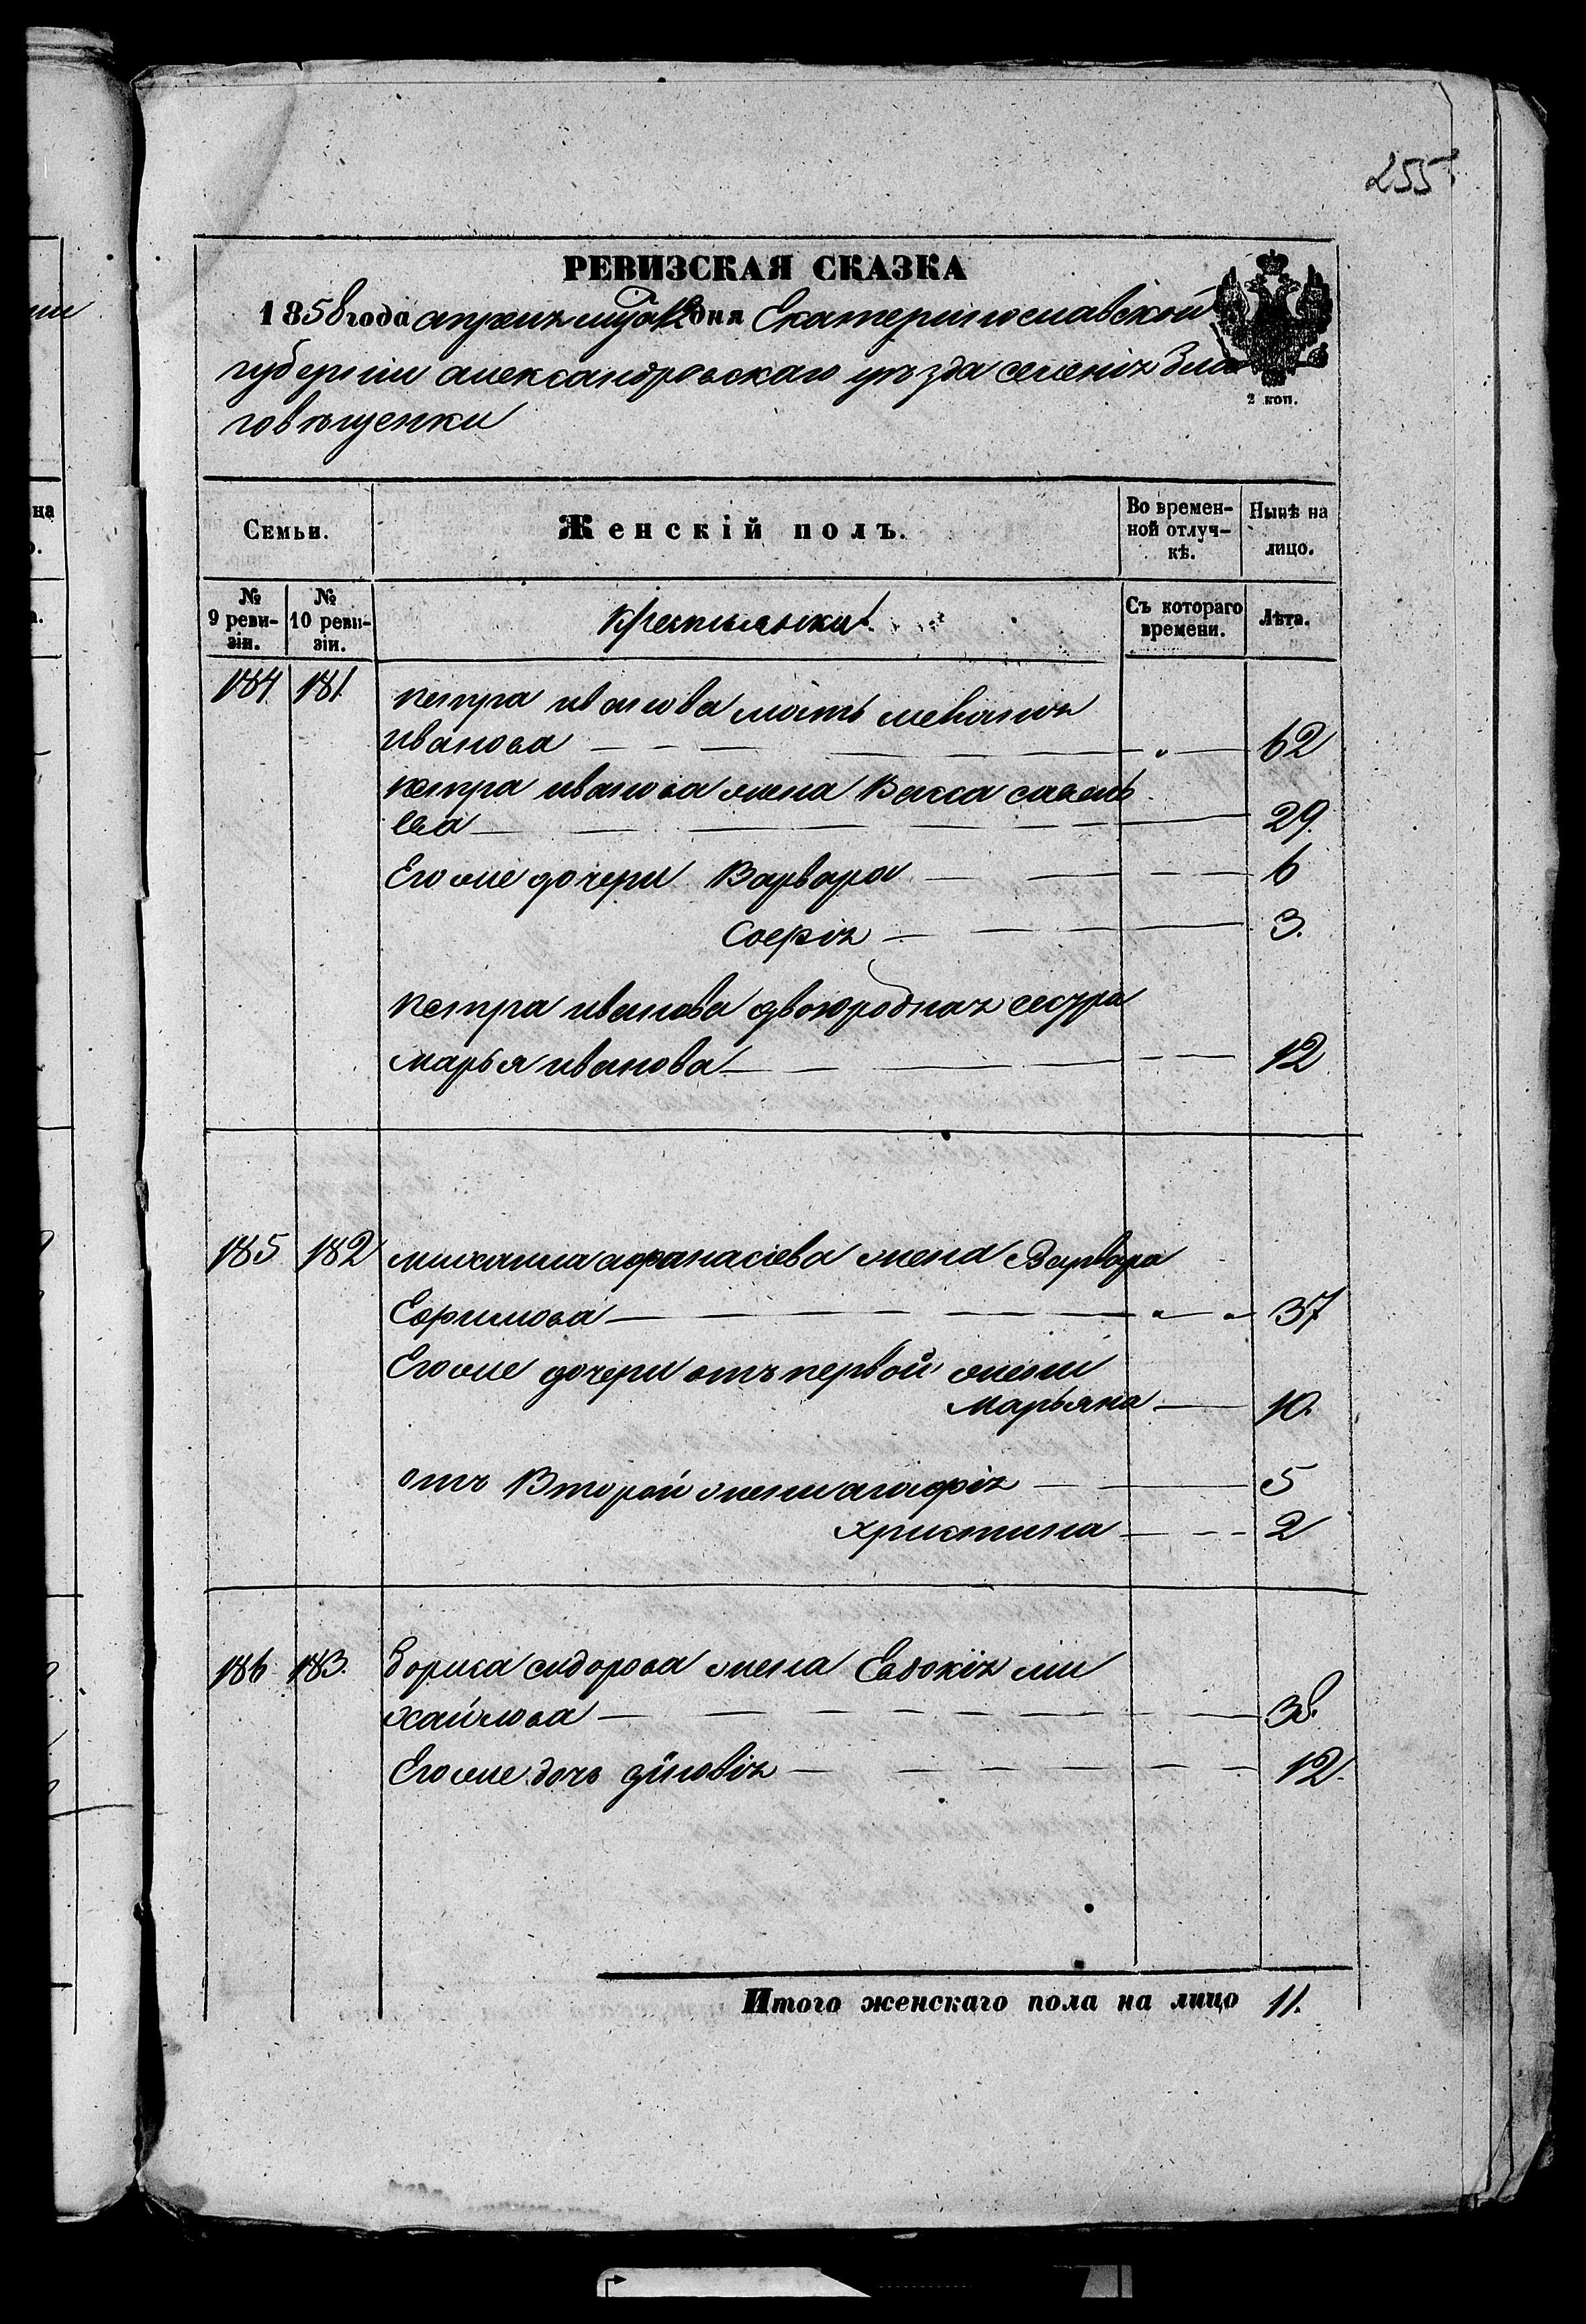 255
РЕВИЗСКАЯ СКАЗКА
1858 года апреля м-ца 12 дня Екатеринославской
губерніи александровскаго уѣзда селенія Бла
2 коп.
говѣщенки
Семьи.
Женскій полъ.
Во времен-
ной отлуч-
кѣ.
Нынѣ на
лицо.
№
9 реви-
зіи.
№
10 реви-
зіи.
крестьянки
Съ котораго
времени.
Лѣта.
184 181 петра иванова мать меланія
иванова 62
петра иванова жена Васса савель
ева 29.
Егоже дочери Варвара 6
Софія 3.
петра иванова двоюродная сестра
марья иванова 12
185 182 михаила афанасіева жена Варвара
Ефимова 37
Егоже дочери отъ первой жены
Марьяна 10.
отъ Второй жены агафія 5
христина 2
186 183. бориса сидорова жена Евдокія ми
хайлова 38.
Егоже дочь зіновія 12.
Итого женскаго пола на лицо 11.